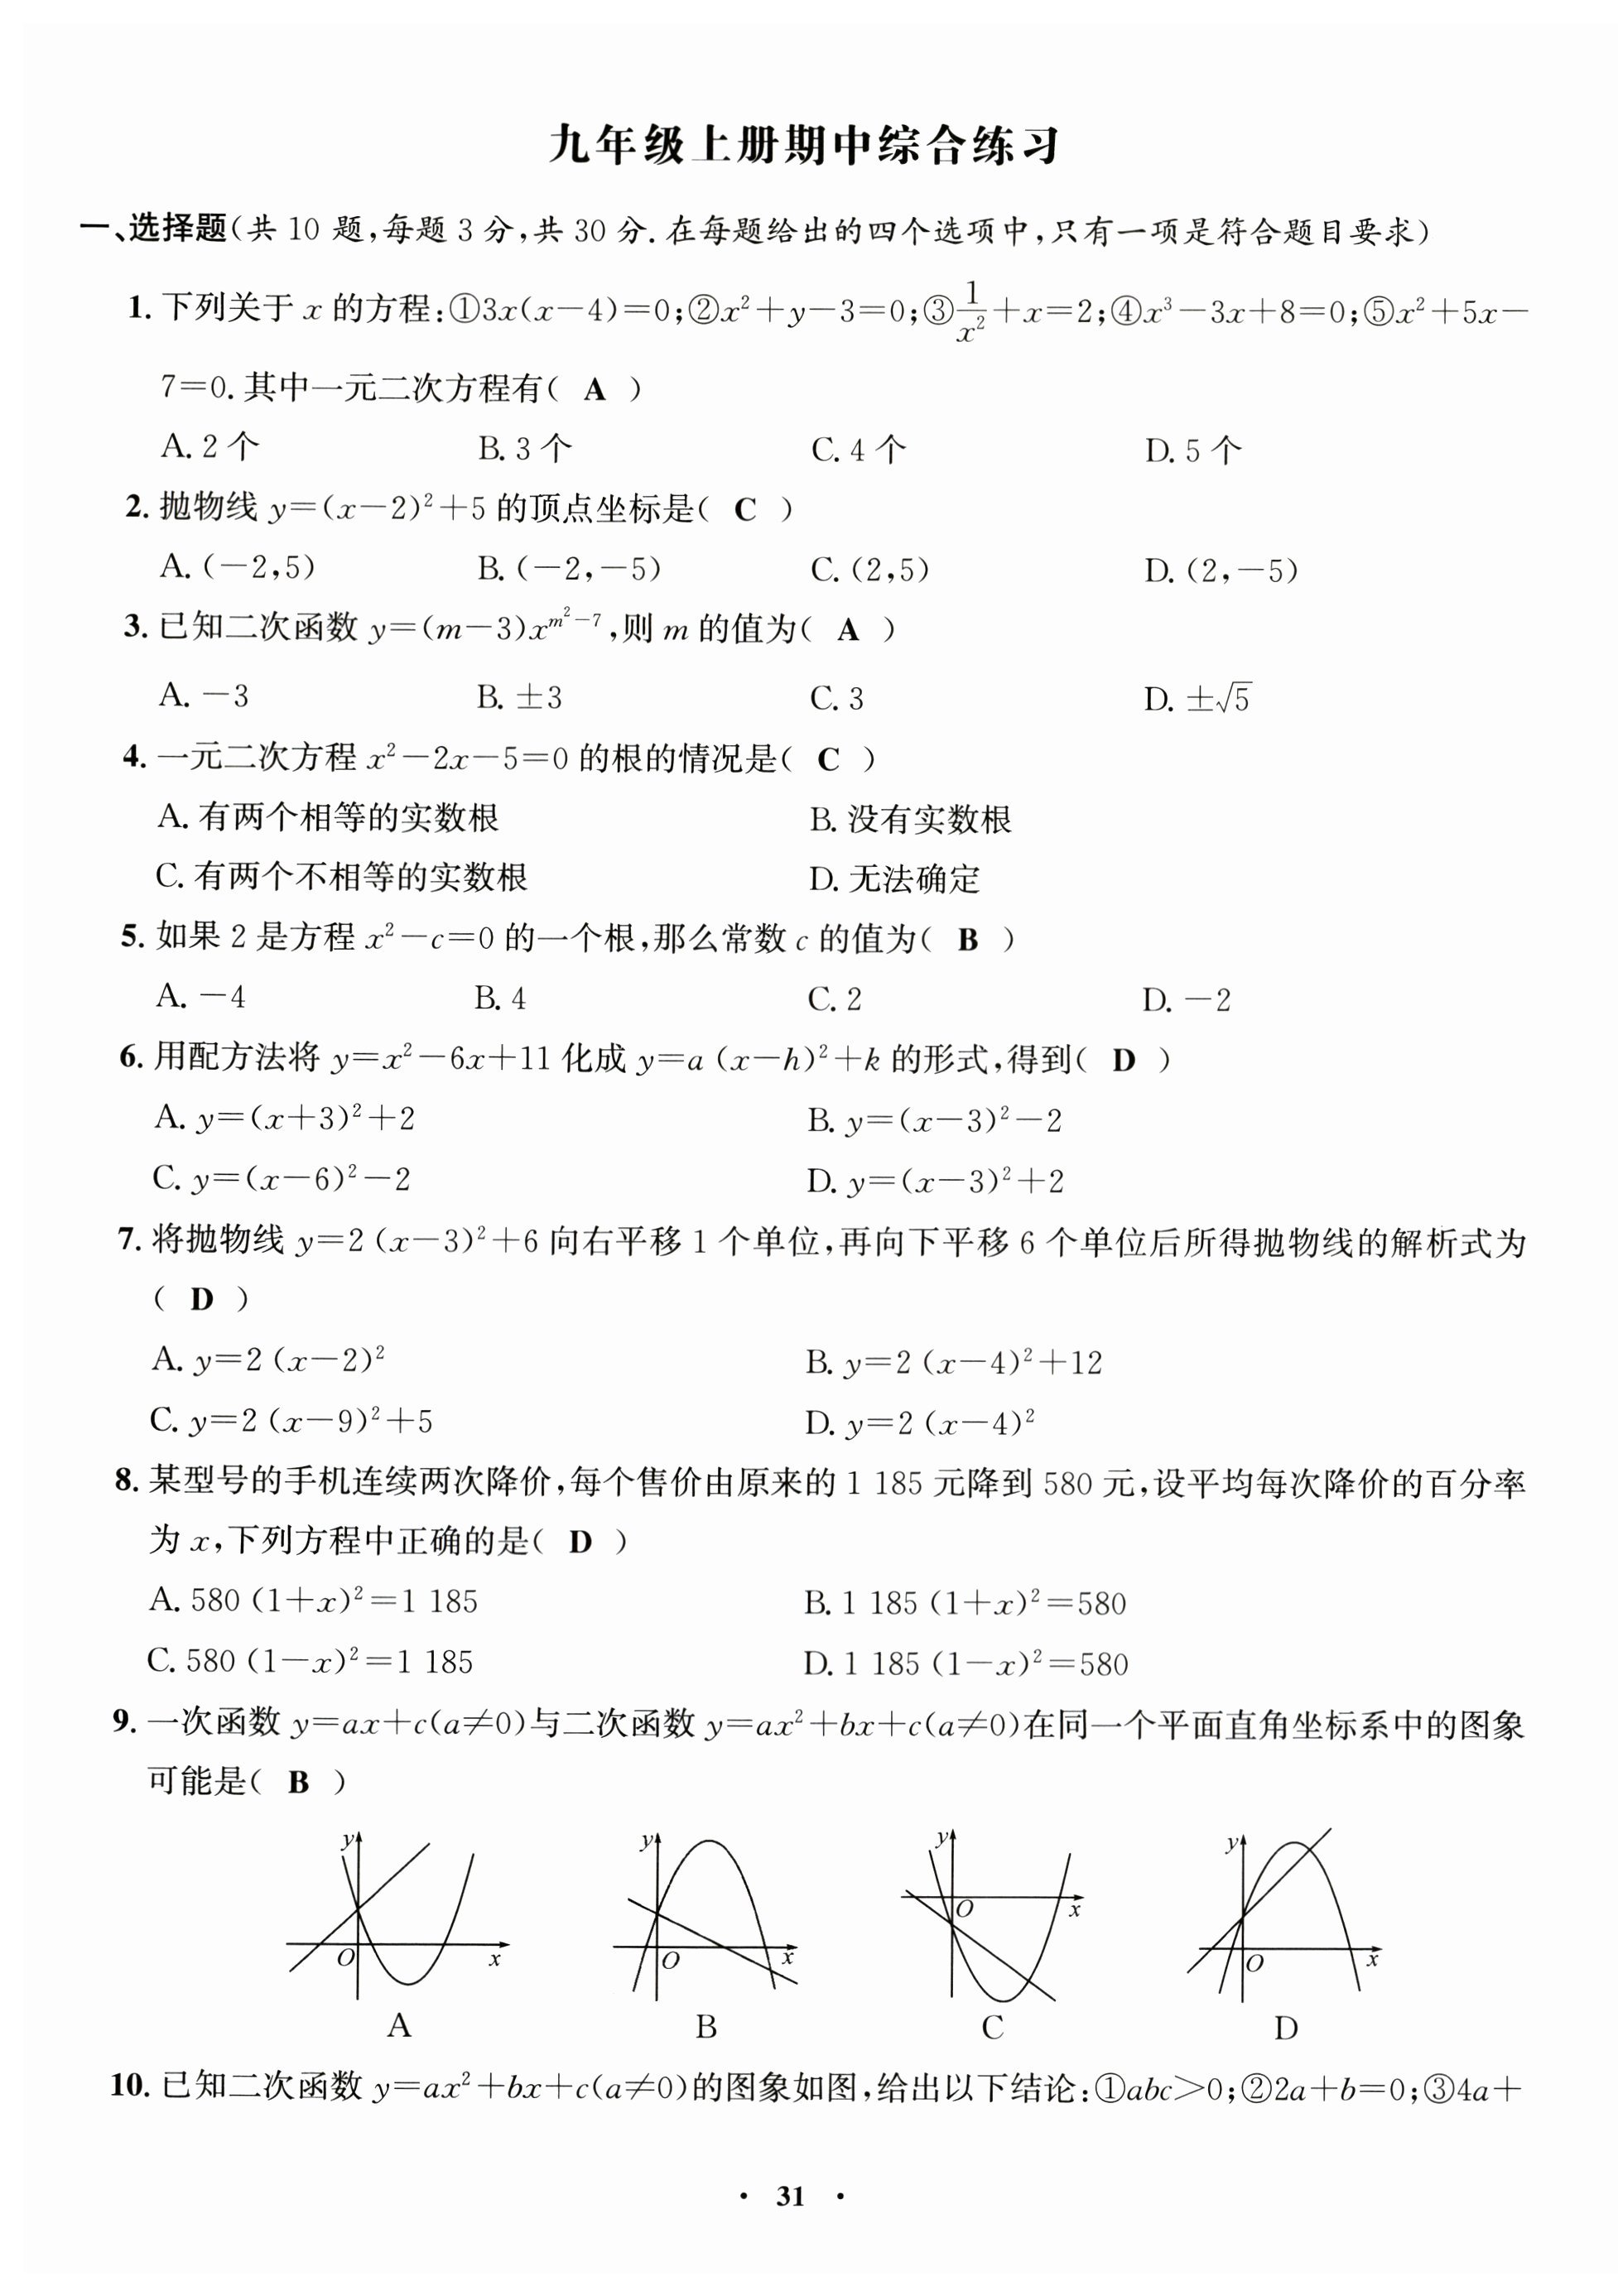 九年级上册期中综合练习
一、选择题(共 10 题,每题 3 分,共 30 分. 在每题给出的四个选项中,只有一项是符合题目要求)
1. 下列关于 x 的方程:①3x(x－4)＝0;②x²＋y－3＝0;③1/x²＋x＝2;④x³－3x＋8＝0;⑤x²＋5x－
7＝0. 其中一元二次方程有( A )
A. 2 个 B. 3 个 C. 4 个 D. 5 个
2. 抛物线 y＝(x－2)²＋5 的顶点坐标是( C )
A. (－2,5) B. (－2,－5) C. (2,5) D. (2,－5)
3. 已知二次函数 y＝(m－3)x^{m²－7},则 m 的值为( A )
A. －3 B. ±3 C. 3 D. ±√5
4. 一元二次方程 x²－2x－5＝0 的根的情况是( C )
A. 有两个相等的实数根 B. 没有实数根
C. 有两个不相等的实数根 D. 无法确定
5. 如果 2 是方程 x²－c＝0 的一个根,那么常数 c 的值为( B )
A. －4 B. 4 C. 2 D. －2
6. 用配方法将 y＝x²－6x＋11 化成 y＝a (x－h)²＋k 的形式,得到( D )
A. y＝(x＋3)²＋2 B. y＝(x－3)²－2
C. y＝(x－6)²－2 D. y＝(x－3)²＋2
7. 将抛物线 y＝2 (x－3)²＋6 向右平移 1 个单位,再向下平移 6 个单位后所得抛物线的解析式为
( D )
A. y＝2 (x－2)² B. y＝2 (x－4)²＋12
C. y＝2 (x－9)²＋5 D. y＝2 (x－4)²
8. 某型号的手机连续两次降价,每个售价由原来的 1 185 元降到 580 元,设平均每次降价的百分率
为 x,下列方程中正确的是( D )
A. 580 (1＋x)²＝1 185 B. 1 185 (1＋x)²＝580
C. 580 (1－x)²＝1 185 D. 1 185 (1－x)²＝580
9. 一次函数 y＝ax＋c(a≠0)与二次函数 y＝ax²＋bx＋c(a≠0)在同一个平面直角坐标系中的图象
可能是( B )
y y y y
O x O x O x O x
A B C D
10. 已知二次函数 y＝ax²＋bx＋c(a≠0)的图象如图,给出以下结论:①abc＞0;②2a＋b＝0;③4a＋
· 31 ·